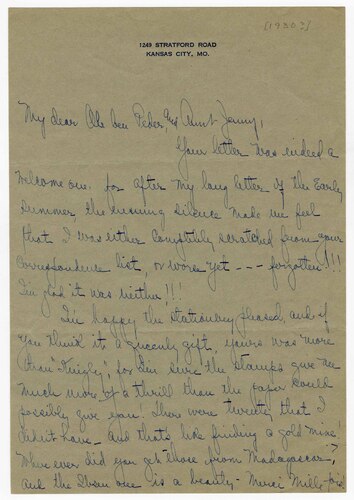 [1930?]
1249 STRATFORD ROAD
KANSAS CITY, MO.
My dear Ole ben Peder, and Aunt Janny,
Your letter was indeed a
welcome one. For after my long letter of the Early
Summer, the ensuing silence made me feel
that I was either completely scratched from your
correspondence list, or worse yet --- forgotten!!!
I'm glad it was neither!!!
I'm happy the stationery pleased, and if
you think it a queenly gift, yours was more
than Kingly, for I'm sure the stamps give me
much more of a thrill than the paper could
possibly give you. There were twenty that I
didn't have - and that's like finding a gold mine!
Where ever did you get those from Madagascar,
and the Ibsen one is a beauty - Merci Mille fois!